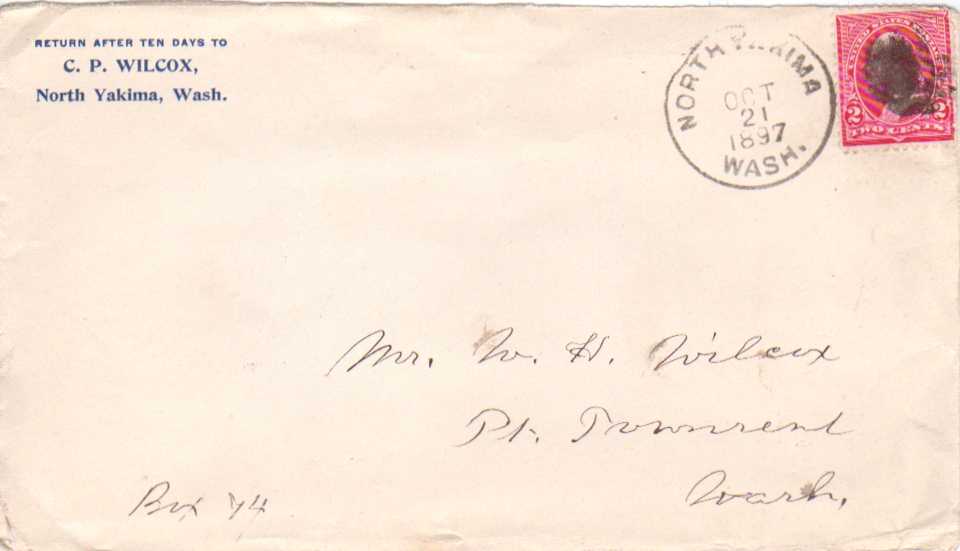 RETURN AFTER TEN DAYS TO
C. P. WILCOX,
North Yakima, Wash.
NORTH YAKIMA
OCT
21
1897
WASH.
UNITED STATES POSTAGE
2 2
TWO CENTS
Mr. W. H. Wilcox
Pt. Townsend
Wash.
Box 74